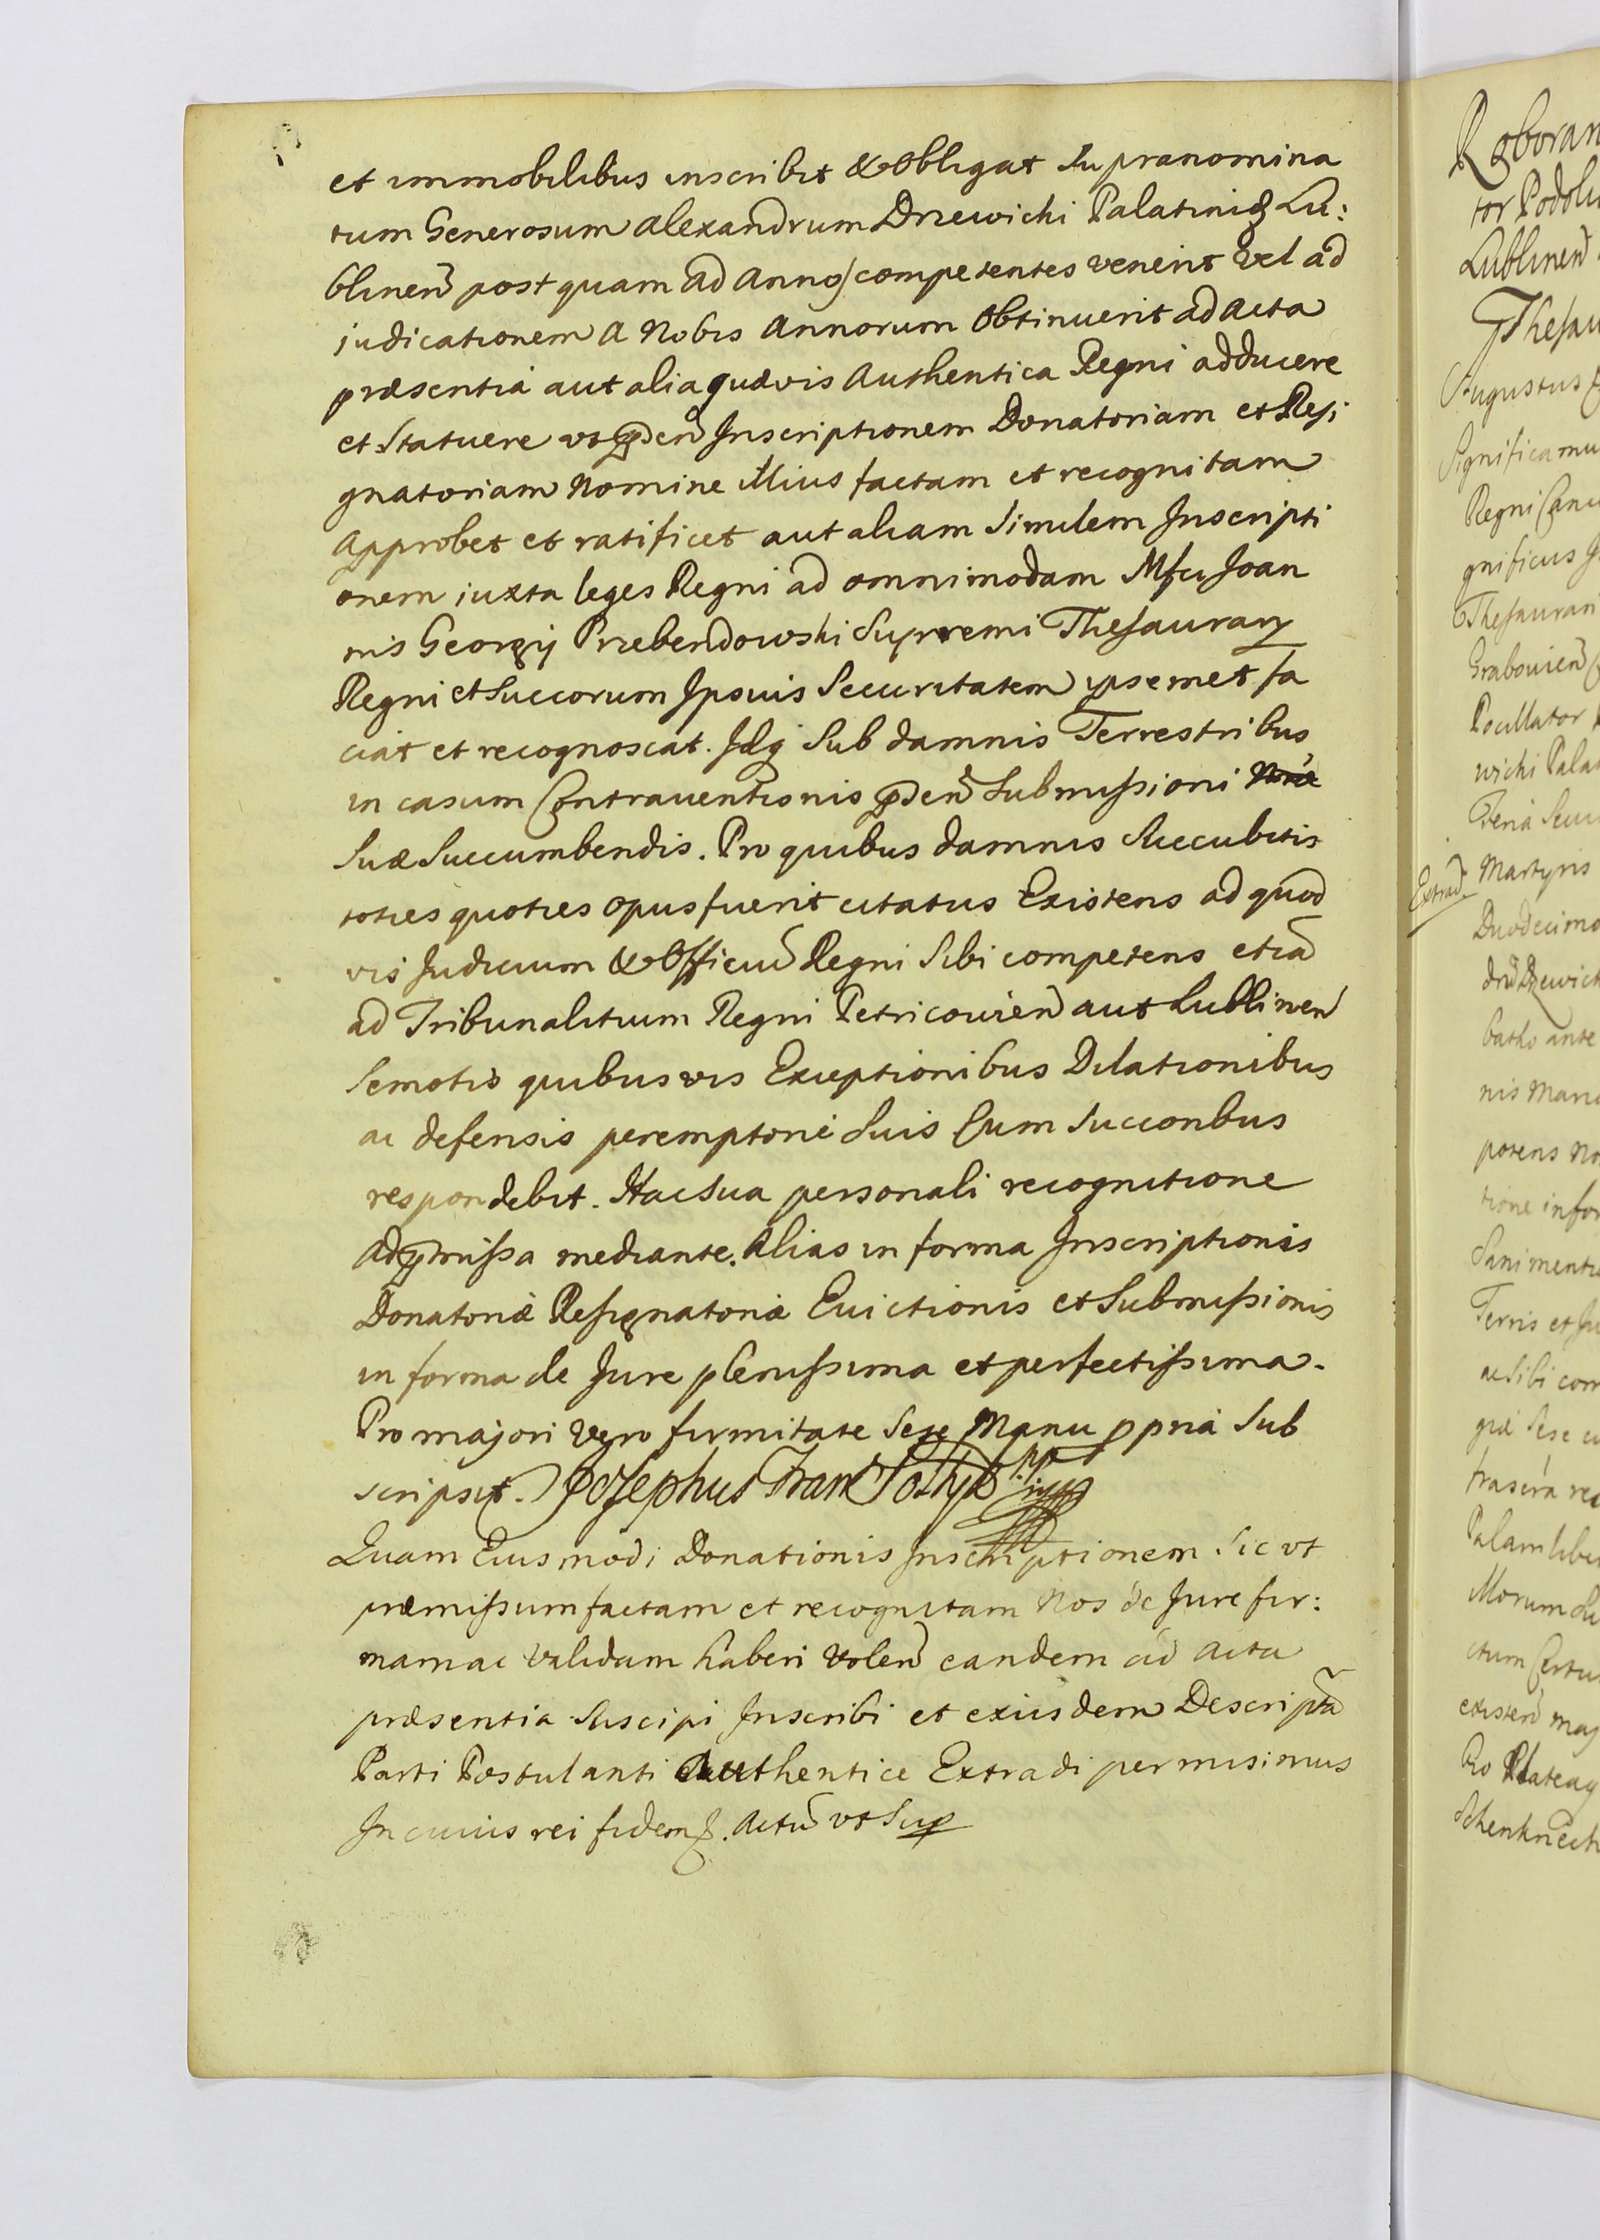 et immobilibus inscribit & Obligat Supranomina
tum Generosum Alexandrum Drzewicki Palatinid Lu:
blinen postquam ad Annos competentes venerit vel ad
judicationem a Nobis Annorum Obtinuerit ad Acta
præsentia aut alia quævis Authentica Regni adducere
et Statuere ut pden Inscriptionem Donatoriam et Resi
gnatoriam Nomine Illius factam et recognitam
Approbet et ratificet aut aliam Similem Inscripti
onem iuxta leges Regni ad omnimodam Mfci Joan
nis Georgij Przebendowski Supremi Thesaurarij
Regni et Succorum Ipsius Securitatem ipsemet fa
ciat et recognoscat. Idq Sub damnis Terrestribus
in casum Contraventionis pden Submissioni
Suæ Succumbendis. Pro quibus damnis Succubitis
toties quoties opus fuerit citatus Existens ad quod
vis Judicium & Officiu Regni Sibi competens etia
ad Tribunalitium Regni Petricovien aut Lublinen
Semotis quibusvis Exceptionibus Dilationibus
ac defensis peremptorie Suis Cum Succoribus
respondebit. Hac Sua personali recognitione
ad pmissa mediante. Alias in forma Inscriptionis
Donatoriæ Resignatoriæ Evictionis et Submissionis
in forma de Jure plenissima et perfectissima.
Pro majori Vero firmitate Sese Manu ppria Sub
scripsit. Josephus Fran Pothy mpp
Quam Eiusmodi Donationis Inscriptionem Sic ut
præmissum factam et recognitam Nos de Jure fir:
mam ac Validam haberi Volen eandem ad Acta
præsentia Suscipi Inscribi et exiusdem Descripta
Parti Postulanti Authentice Extradi permisimus
In cuius rei fidem. Actu ut Sup
Roboran
tor Podoli
Lublinen
Thesau
Augustus
Significamu
Regni Canc
gnificus J
Thesaurari
Grabovien
Pocillator
wicki Pala
Feria Secu
Extrad. Martyris
Duodecimo
dru Drzewick
ante
nis Mari
potens No
tione infor
Sani mentis
Terris et Ju
ac Sibi com
giæ Sese cu
trascra rec
Palam libe
Morum Su
ctum Certu
existen maj
Pro Plateaq
Schenknech